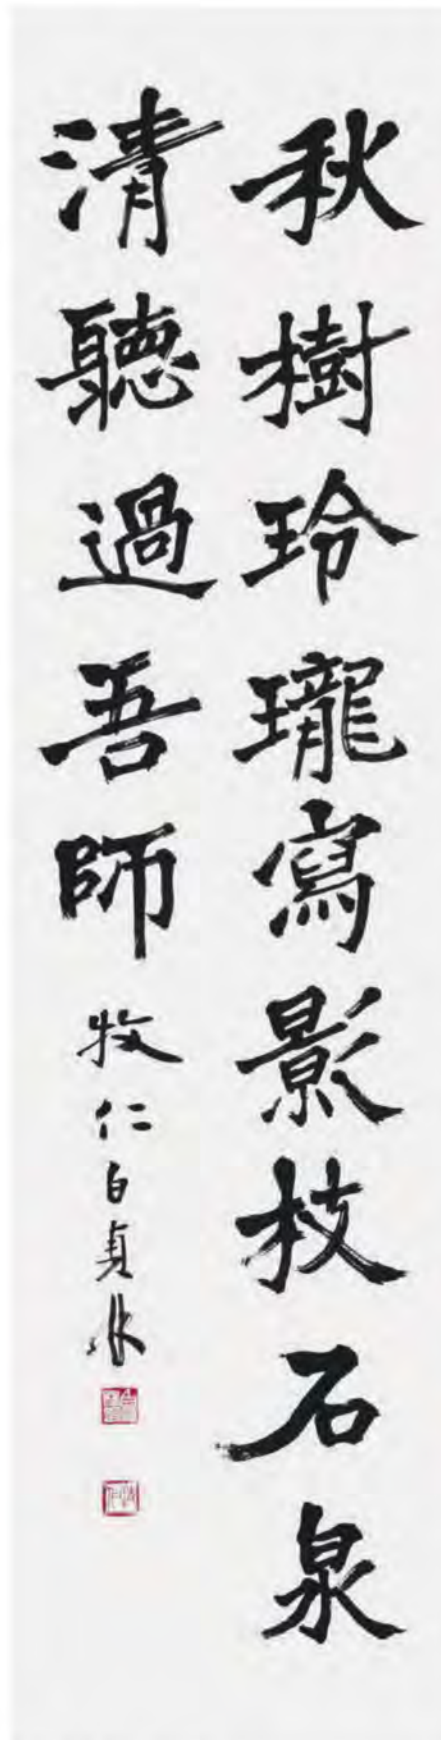 秋樹玲瓏寫影枝石泉
清聽過吾師 牧仁白貞水